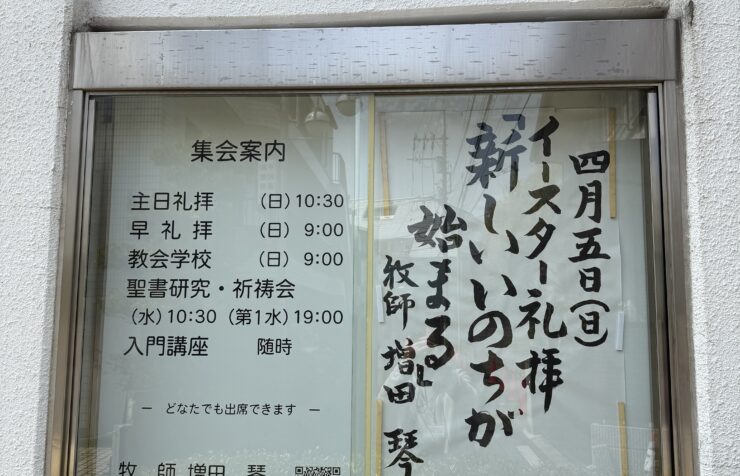 集会案内
主日礼拝 (日)10:30
早礼拝 (日) 9:00
教会学校 (日) 9:00
聖書研究・祈祷会
(水)10:30 (第1水)19:00
入門講座 随時
― どなたでも出席できます ―
牧師 増田 琴
四月五日(日)
イースター礼拝
「新しいいのちが
始まる」
牧師 増田 琴